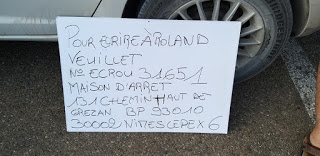 POUR ECRIRE À ROLAND
VEUILLET
No ECROU 31651
MAISON D'ARRET
131 CHEMIN HAUT DE
GREZAN BP 93010
30002 NIMES CEDEX 6